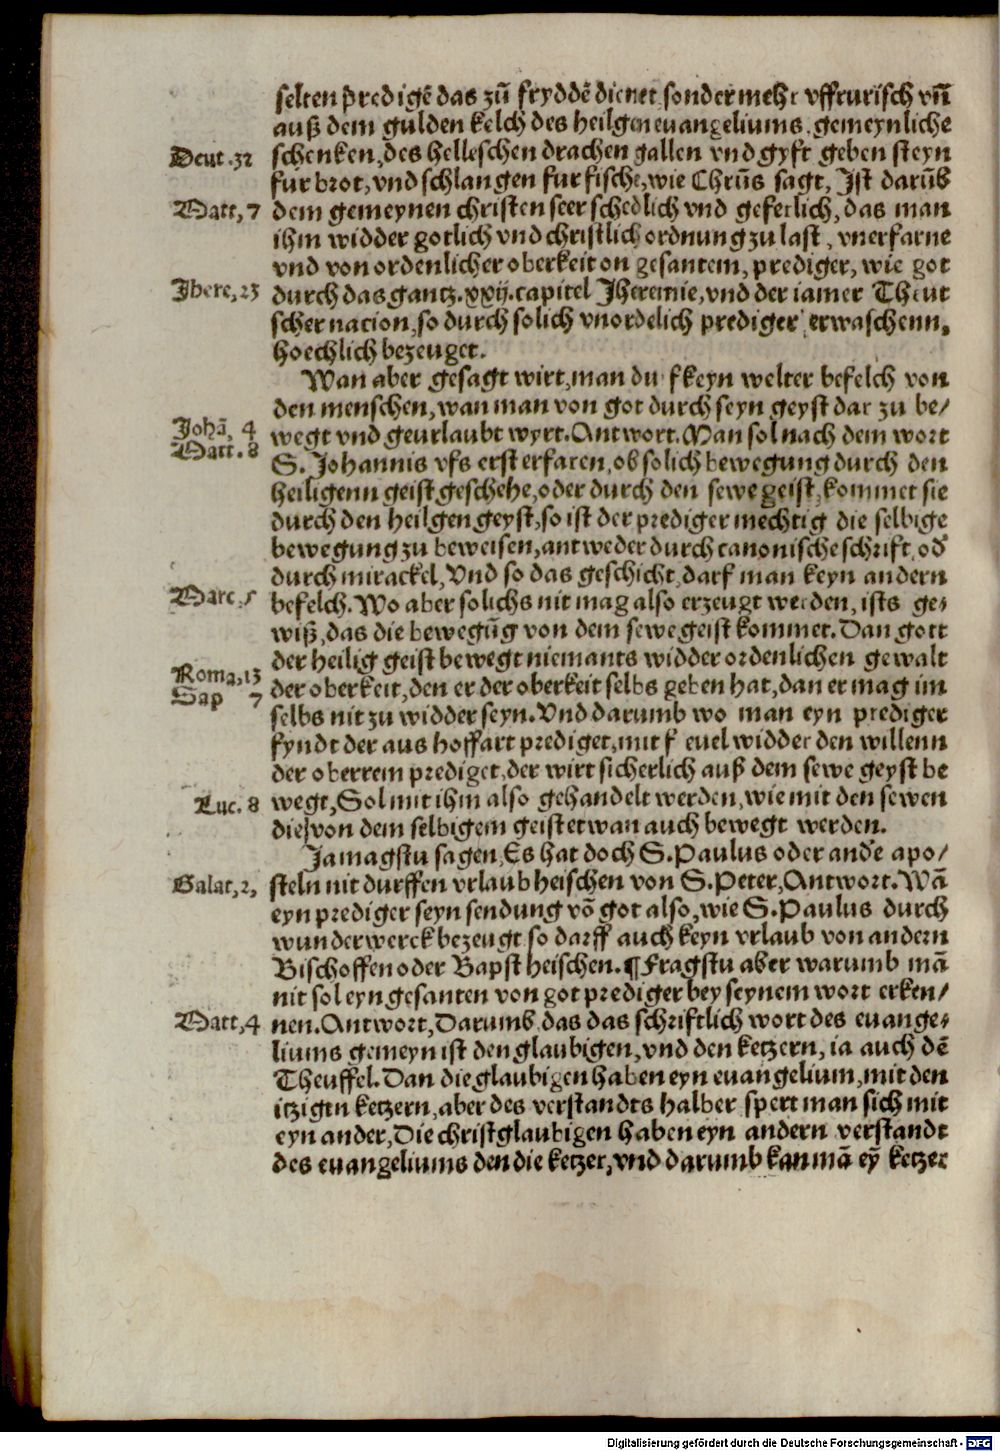 selten predigē das zū fryddē dienet sonder mehr vffrurisch vñ
auß dem gulden kelch des heilgen euangeliums, gemeynliche
Deut.32 schencken, des helleschen drachen gallen vnd gyft geben steyn
fur brot, vnd schlangen fur fische, wie Chrūs sagt, Ist darūb
Matt,7 dem gemeynen christen seer schedlich vnd geferlich, das man
ihm widder gotlich vnd christlich ordnung zu last, vnerfarne
vnd von ordenlicher oberkeit on gesantem, prediger, wie got
Jhere,23 durch das gantz.xxij.capitel Jheremie, vnd der iamer Theut
scher nacion, so durch solich vnordelich prediger erwaschenn,
hoechlich bezeuget.
Wan aber gesagt wirt, man durfkeyn welter befelch von
den menschen, wan man von got durch seyn geyst dar zu be/
Johā, 4 wegt vnd geurlaubt wyrt. Antwort. Man sol nach dem wort
Matt.8 S. Johannis vfs erst erfaren, ob solich bewegung durch den
heiligenn geist geschehe, oder durch den sewegeist, kommet sie
durch den heilgen geyst, so ist der prediger mechtig die selbige
bewegung zu beweisen, antweder durch canonische schrift, od'
durch mirackel, Vnd so das geschicht, darf man keyn andern
Marc,5 befelch. Wo aber solichs nit mag also erzeugt werden, ists ge/
wiß, das die bewegūg von dem sewegeist kommet. Dan gott
der heilig geist bewegt niemants widder ordenlichen gewalt
Roma,13 der oberkeit, den er der oberkeit selbs geben hat, dan er mag im
Sap 7 selbs nit zu widder seyn. Vnd darumb wo man eyn prediger
fyndt der aus hoffart prediget, mit freuel widder den willenn
der oberrem prediget, der wirt sicherlich auß dem sewe geyst be
Luc.8 wegt, Sol mit ihm also gehandelt werden, wie mit den sewen
die von dem selbigem geist etwan auch bewegt werden.
Ja magstu sagen, Es hat doch S. Paulus oder and'e apo/
Galat,2, steln nit durffen vrlaub heischen von S. Peter, Antwort. Wā
eyn prediger seyn sendung vō got also, wie S. Paulus durch
wunderwerck bezeugt so darff auch keyn vrlaub von andern
Bischoffen oder Bapst heischen. ¶ Fragstu aber warumb mā
nit sol eyn gesanten von got prediger bey seynem wort erken/
Matt,4 nen. Antwort, Darumb das das schriftlich wort des euange/
liums gemeyn ist den glaubigen, vnd den ketzern, ia auch dē
Theuffel. Dan die glaubigen haben eyn euangelium, mit den
itzigen ketzern, aber des verstandts halber spert man sich mit
eyn ander, Die christglaubigen haben eyn andern verstandt
des euangeliums den die ketzer, vnd darumb kan mā eȳ ketzer
Digitalisierung gefördert durch die Deutsche Forschungsgemeinschaft - DFG